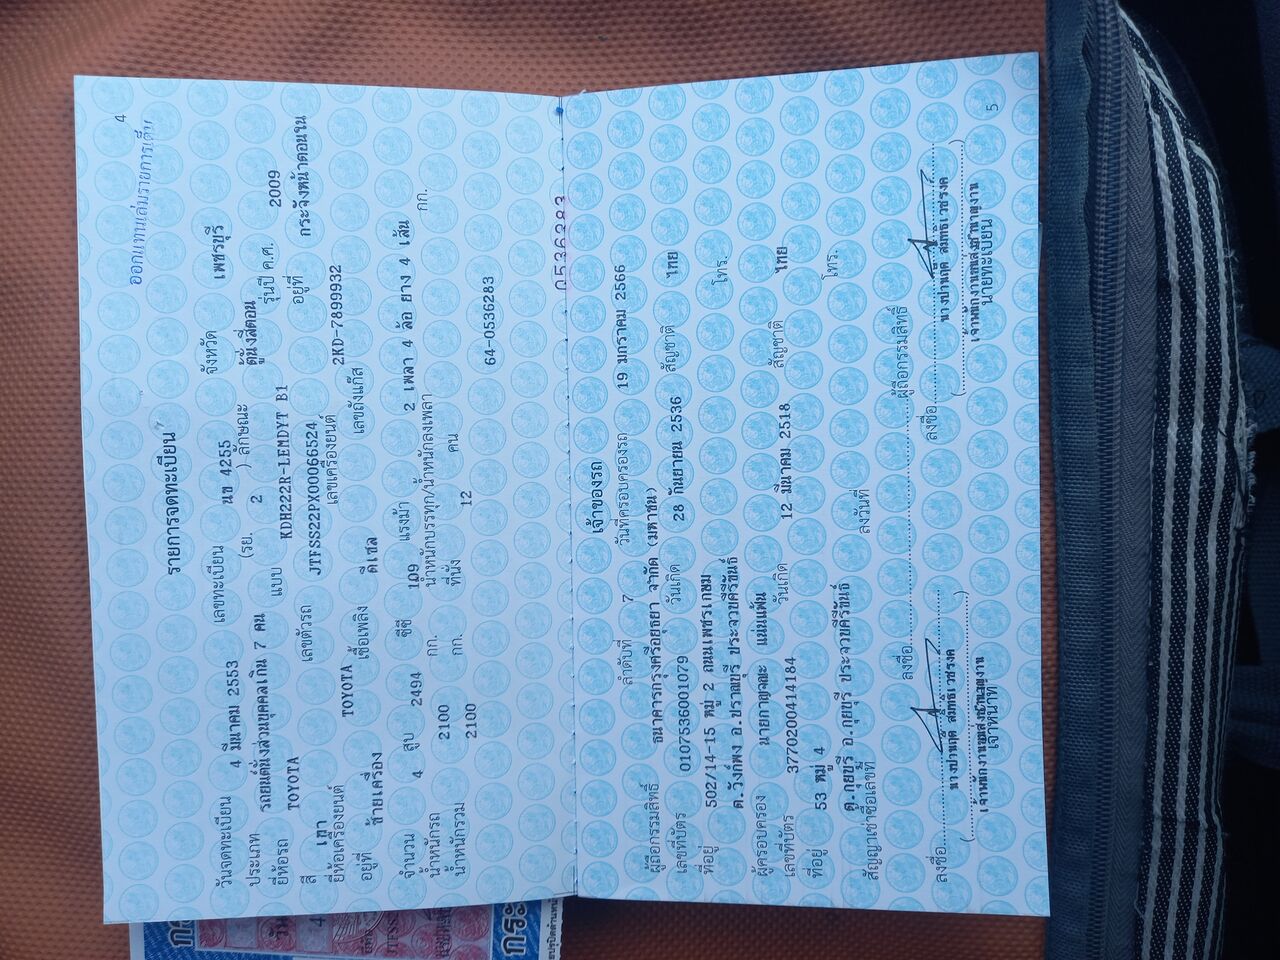 4
ออกแทนเล่มรายการเต็ม
รายการจดทะเบียน
วันจดทะเบียน 4 มีนาคม 2553 เลขทะเบียน นข 4255 จังหวัด เพชรบุรี
ประเภท รถยนต์นั่งส่วนบุคคลเกิน 7 คน (รย. 2 ) ลักษณะ ตู้นั่งสี่ตอน
ยี่ห้อรถ TOYOTA แบบ KDH222R-LEMDYT B1 รุ่นปี ค.ศ. 2009
สี เทา เลขตัวรถ JTFSS22PX00066524 อยู่ที่ กระจังหน้าตอนใน
ยี่ห้อเครื่องยนต์ TOYOTA เลขเครื่องยนต์ 2KD-7899932
อยู่ที่ ซ้ายเครื่อง เชื้อเพลิง ดีเซล เลขถังแก๊ส
จำนวน 4 สูบ 2494 ซีซี 109 แรงม้า 2 เพลา 4 ล้อ ยาง 4 เส้น
น้ำหนักรถ 2100 กก. น้ำหนักบรรทุก/น้ำหนักลงเพลา กก.
น้ำหนักรวม 2100 กก. ที่นั่ง 12 คน
64-0536283
0536283
เจ้าของรถ
ลำดับที่ 7 วันที่ครอบครองรถ 19 มกราคม 2566
ผู้ถือกรรมสิทธิ์ ธนาคารกรุงศรีอยุธยา จำกัด (มหาชน)
เลขที่บัตร 0107536001079 วันเกิด 28 กันยายน 2536 สัญชาติ ไทย
ที่อยู่ 502/14-15 หมู่ 2 ถนนเพชรเกษม โทร.
ต.วังก์พง อ.ปราณบุรี ประจวบคีรีขันธ์
ผู้ครอบครอง นายกาญจณะ แน่นแฟ้น
เลขที่บัตร 3770200414184 วันเกิด 12 มีนาคม 2518 สัญชาติ ไทย
ที่อยู่ 53 หมู่ 4 โทร.
ต.กุยบุรี อ.กุยบุรี ประจวบคีรีขันธ์
สัญญาเช่าซื้อเลขที่ ลงวันที่
ลงชื่อ ผู้ถือกรรมสิทธิ์
ลงชื่อ ลงชื่อ
เจ้าพนักงานขนส่งชำนาญงาน เจ้าพนักงานขนส่งชำนาญงาน
เจ้าหน้าที่ นายทะเบียน
5